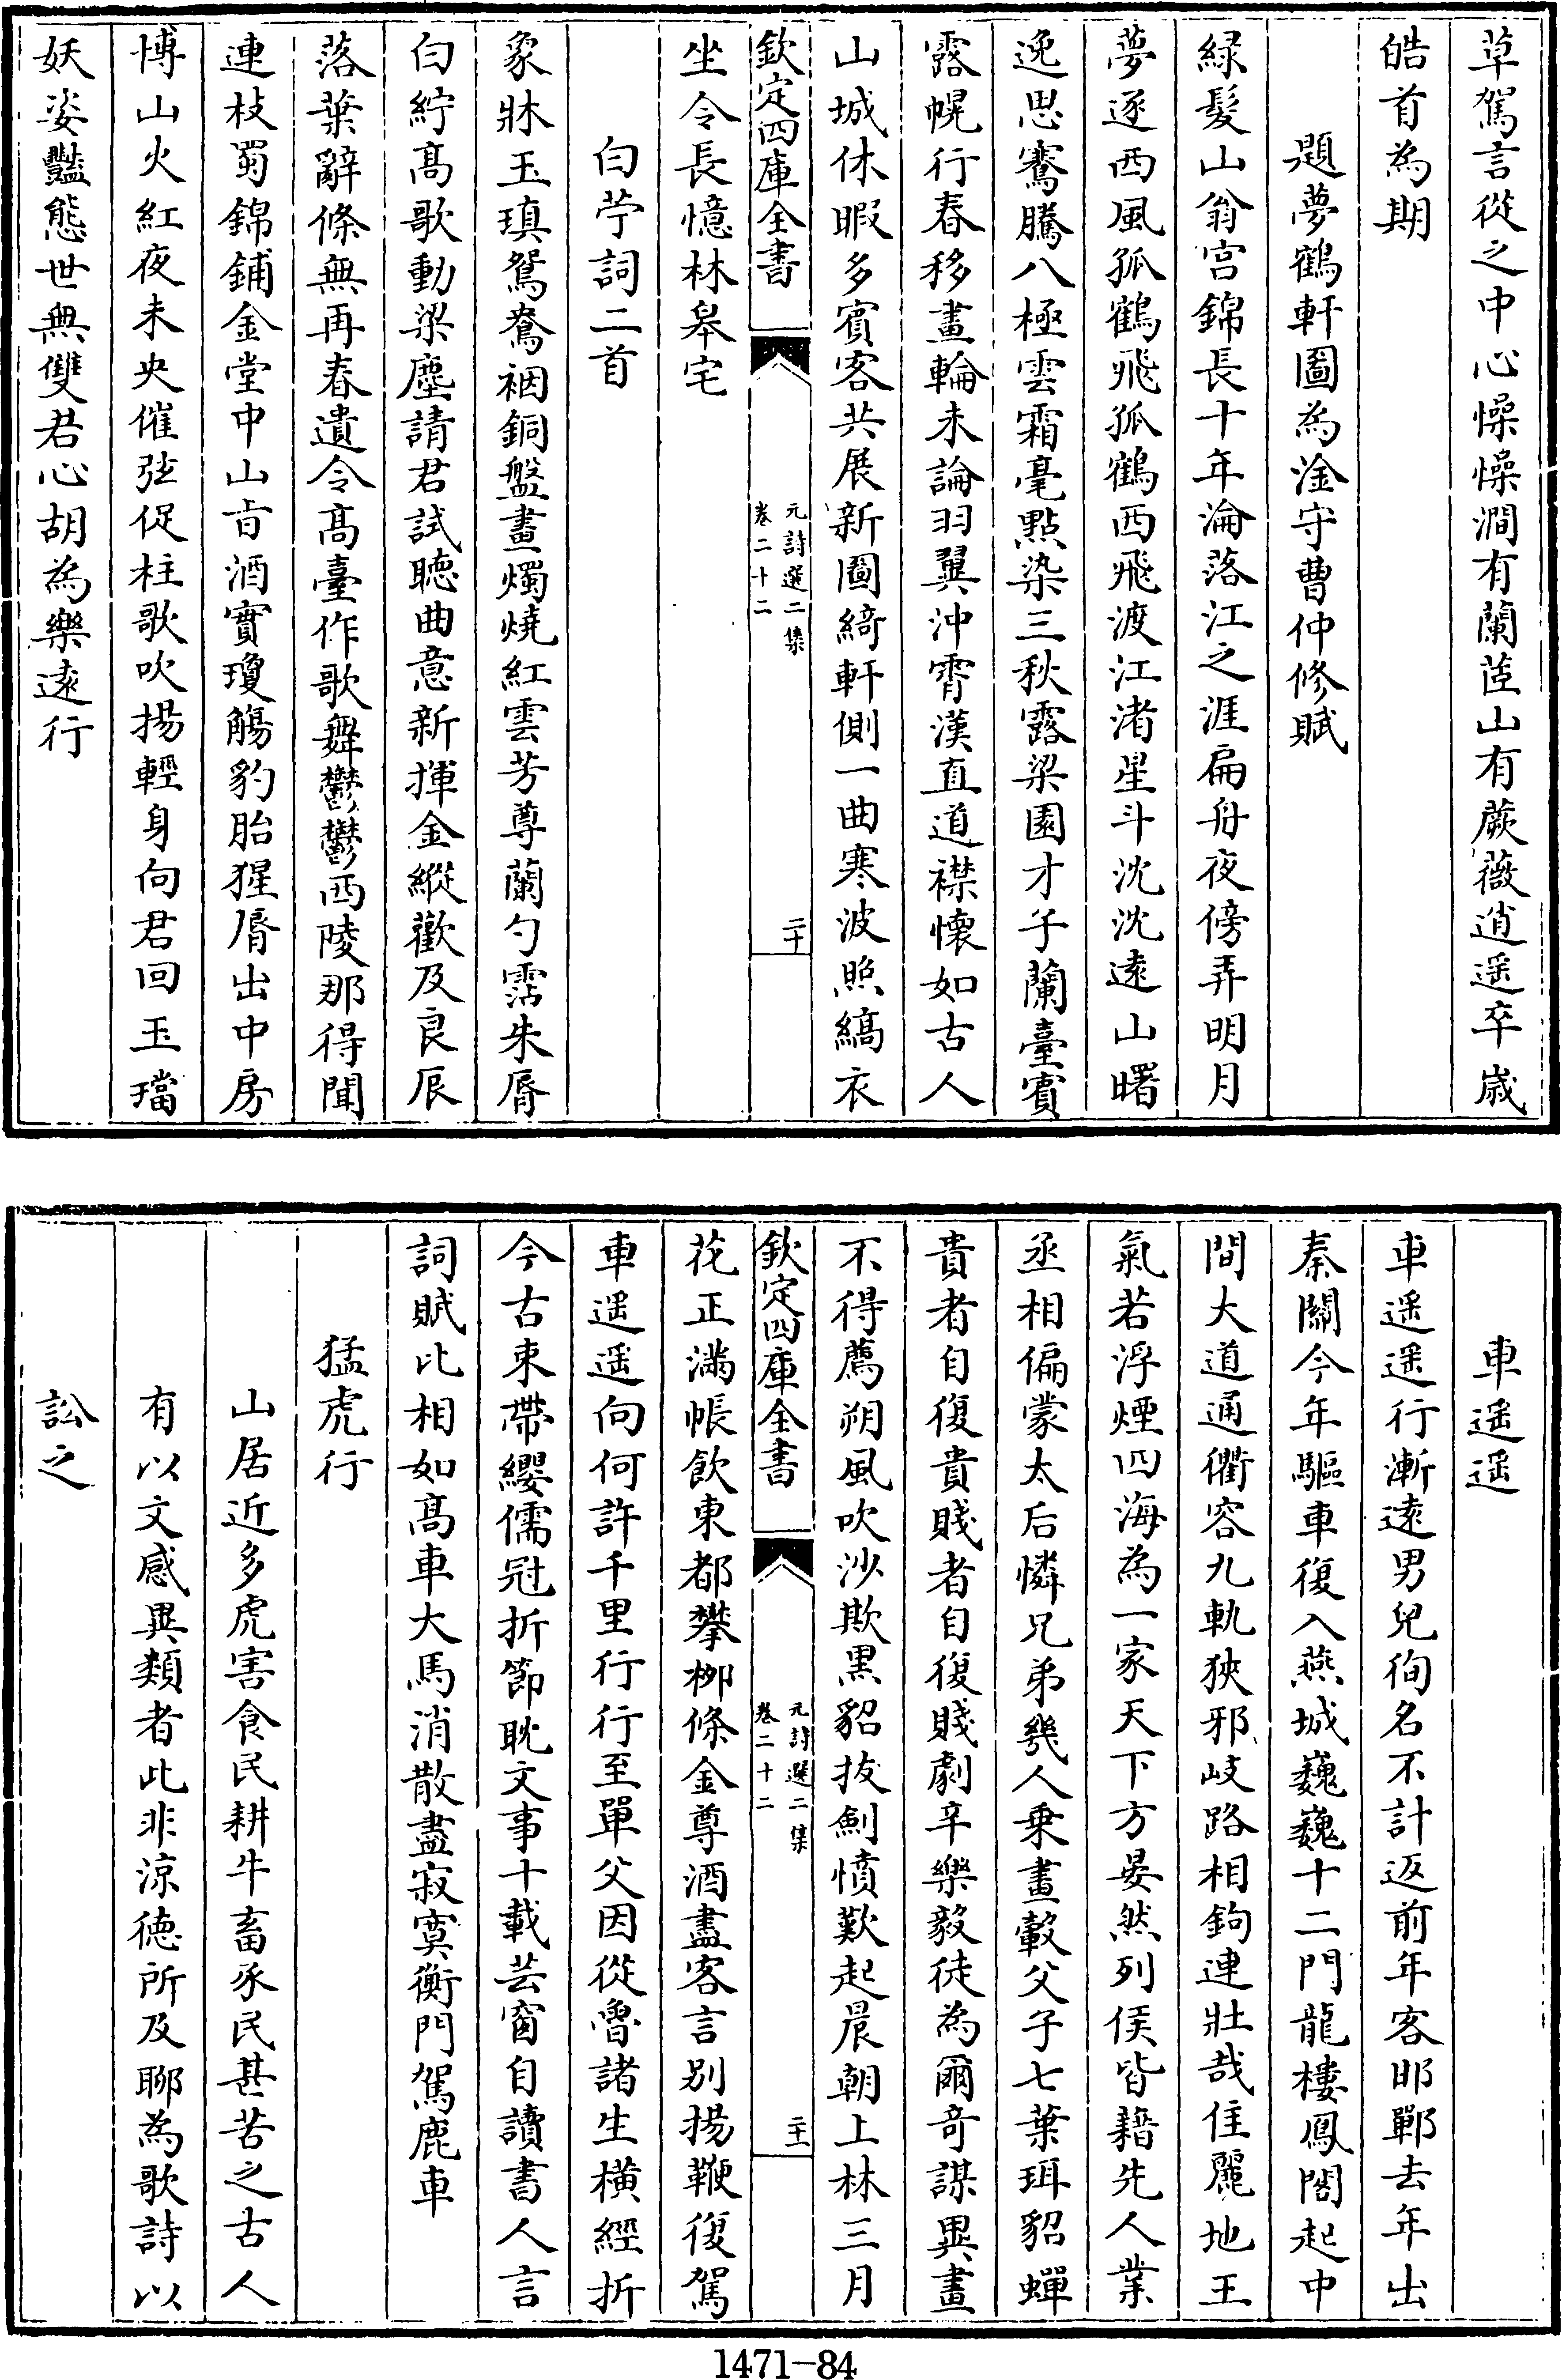 草駕言從之中心懆懆澗有蘭茝山有蕨薇逍遥卒歳
皓首為期
題夢鶴軒圖為淦守曹仲修賦
緑髮山翁宫錦長十年淪落江之涯扁舟夜傍弄明月
夢逐西風孤鶴飛孤鶴西飛渡江渚星斗沈沈遠山曙
逸思騫騰八極雲霜毫點染三秋露梁園才子蘭臺賓
露幌行春移畫輪未論羽翼沖霄漢直道襟懷如古人
山城休暇多賓客共展新圖綺軒側一曲寒波照縞衣
欽定四庫全書
元詩選二集
卷二十二
二十
坐令長憶林皋宅
白苧詞二首
象牀玉瑱鴛鴦裀銅盤畫燭燒紅雲芳尊蘭勺霑朱脣
白紵髙歌動梁塵請君試聽曲意新揮金縱歡及良辰
落葉辭條無再春遺令髙臺作歌舞鬱鬱西陵那得聞
連枝蜀錦鋪金堂中山㫖酒實瓊觴豹胎猩脣出中房
博山火紅夜未央催弦促柱歌吹揚輕身向君回玉璫
妖姿豔態世無雙君心胡為樂遠行
車遥遥
車遥遥行漸遠男兒徇名不計返前年客邯鄲去年出
秦關今年驅車復入燕城巍巍十二門龍樓鳳閣起中
間大道通衢容九軌狹邪岐路相鉤連壯哉佳麗地王
氣若浮煙四海為一家天下方晏然列侯皆藉先人業
丞相偏蒙太后憐兄弟幾人乗畫轂父子七葉珥貂蟬
貴者自復貴賤者自復賤劇辛樂毅徒為爾竒謀異畫
不得薦朔風吹沙欺黒貂拔劍憤歎起晨朝上林三月
欽定四庫全書
元詩選二集
卷二十二
二十一
花正滿帳飲東都攀栁條金尊酒盡客言别揚鞭復駕
車遥遥向何許千里行行至單父因從魯諸生横經折
今古束帶纓儒冠折節耽文事十載芸窗自讀書人言
詞賦比相如髙車大馬消散盡寂寞衡門駕鹿車
猛虎行
山居近多虎害食民耕牛畜豕民甚苦之古人
有以文感異類者此非凉徳所及聊為歌詩以
訟之
1471-84